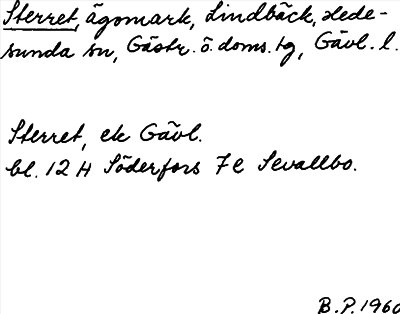 Sterret, ägomark, Lindbäck, Hede-
sunda sn, Gästr. ö. doms. tg, Gävl. l.
Sterret, ek Gävl.
bl. 12 H Söderfors 7 e Sevallbo.
B.P. 1960